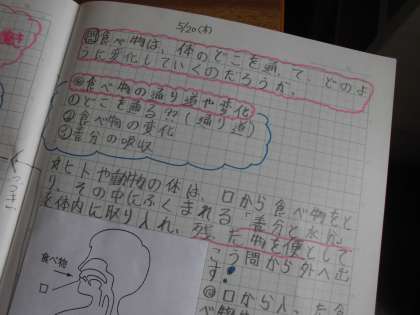 5/20(木)
問食べ物は、体のどこを通って、どのよ
うに変化していくのだろうか。
食べ物の通り道や変化
①どこを通る??(通り道)
②食べ物の変化
③養分の吸収
ヒトや動物の体は、口から食べ物をと
り、その中にふくまれる養分と水分
を体内に取り入れ、残った物を便として
こう門から外へ出
す。
口から入った
食べ物
口